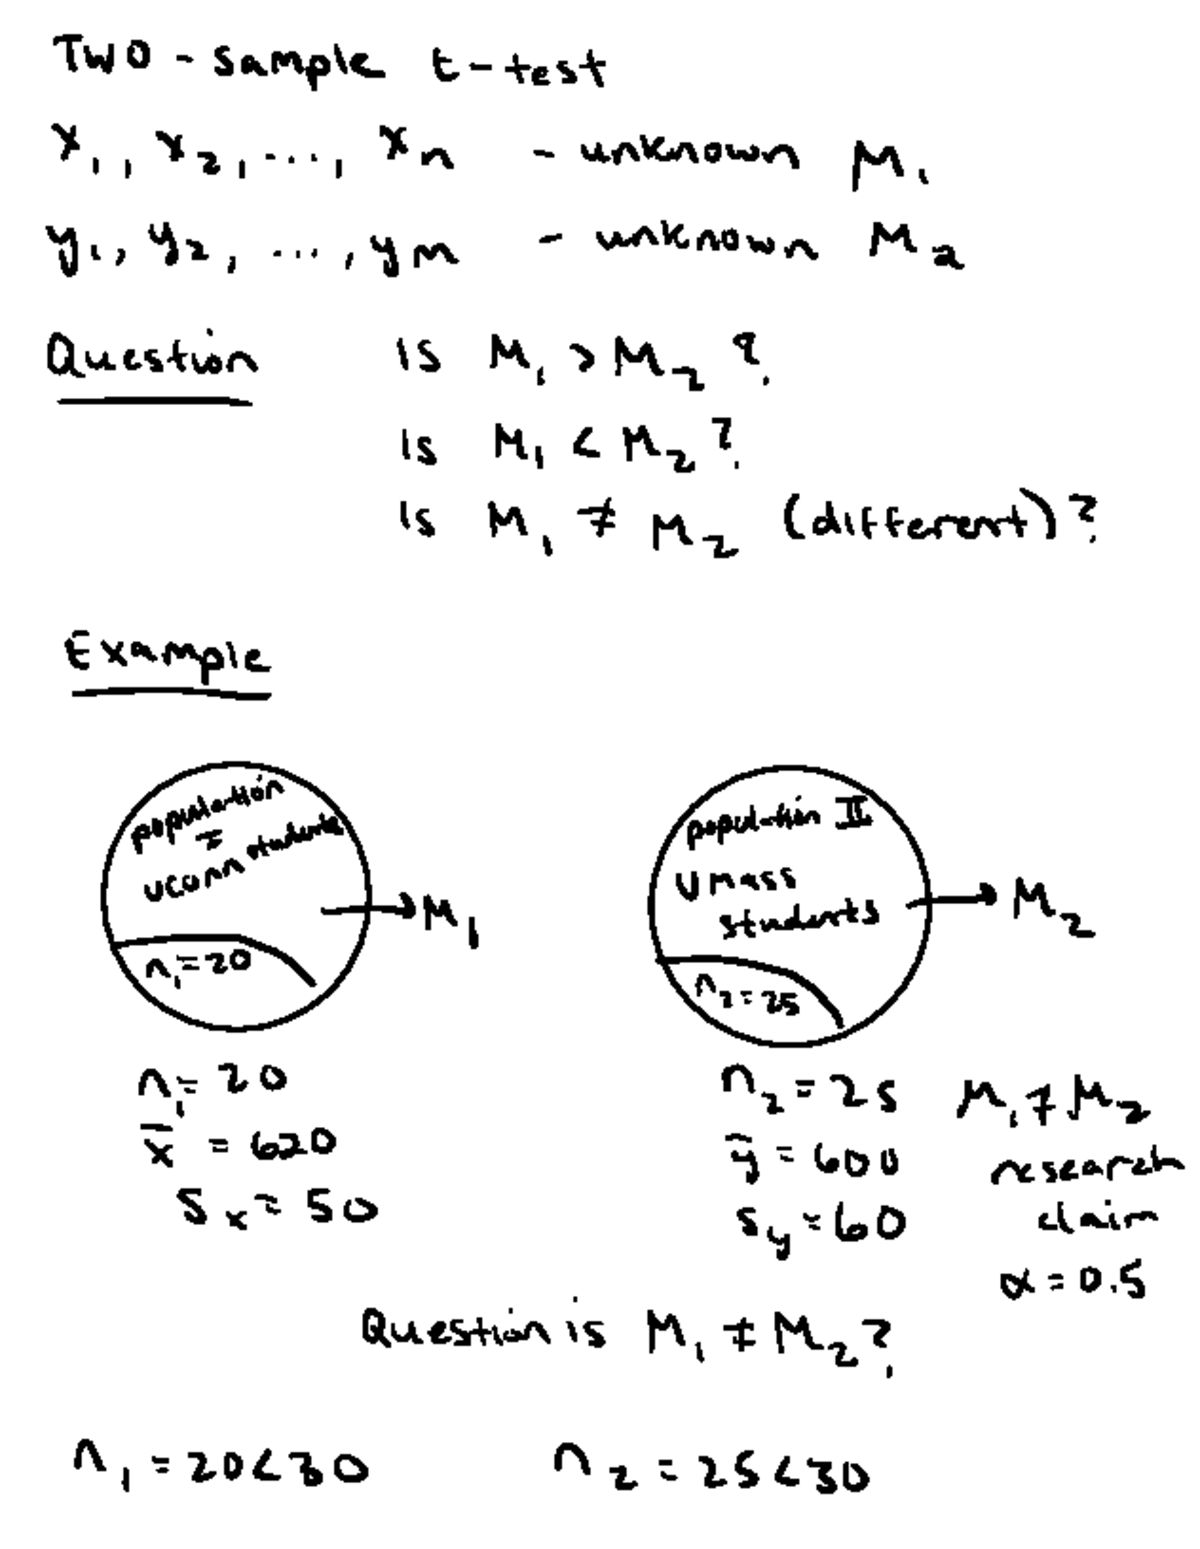 Two - sample t - test
x₁, x₂, ..., xₙ - unknown μ₁
y₁, y₂, ..., yₘ - unknown μ₂
Question is μ₁ > μ₂ ?
is μ₁ < μ₂ ?
Is μ₁ ≠ μ₂ (different) ?
Example
population
I
UCONN students
→ μ₁
n₁ = 20
population II
U mass
students
→ μ₂
n₂ = 25
n₁ = 20
x̄ = 620
Sₓ = 50
n₂ = 25
ȳ = 600
Sy = 60
μ₁ ≠ μ₂
research
claim
α = 0.5
Question is μ₁ ≠ μ₂ ?
n₁ = 20 < 30 n₂ = 25 < 30